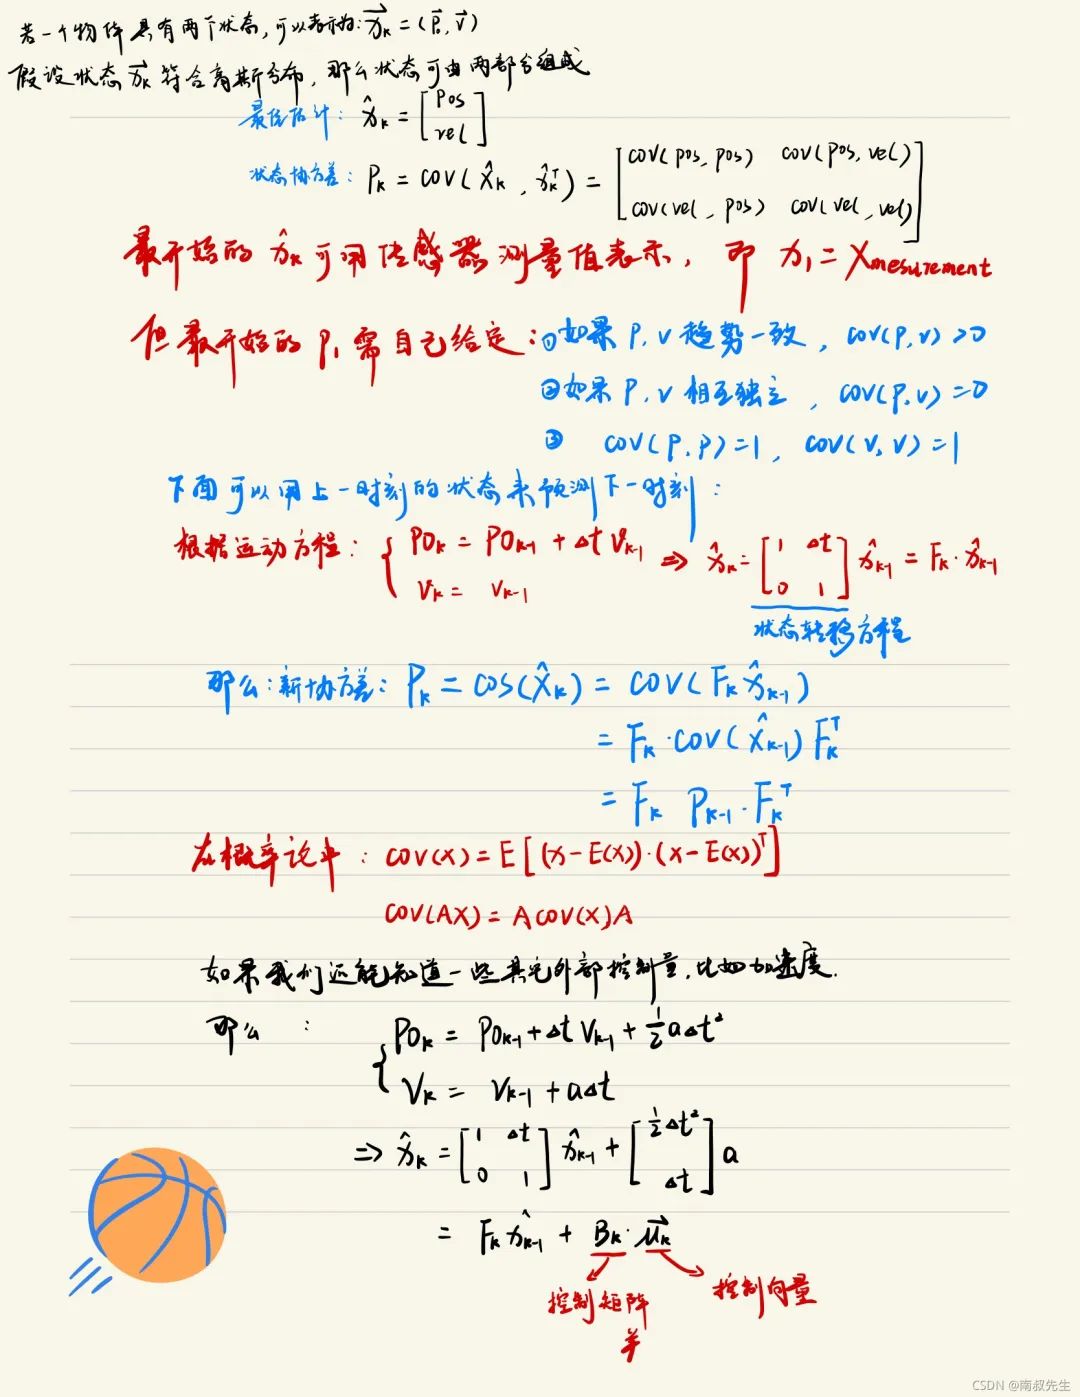 若一个物体具有两个状态,可以表示为: x⃗ₖ = (p⃗, v⃗)
假设状态 x⃗ₖ 符合高斯分布, 那么状态可由两部分组成
最佳估计: x̂ₖ = [pos; vel]
状态协方差: Pₖ = cov(x̂ₖ, x̂ₖᵀ) = [cov(pos, pos) cov(pos, vel); cov(vel, pos) cov(vel, vel)]
最开始的 x̂ₖ 可用传感器测量值表示, 即 x₁ = Xmesurement
但最开始的 P₁ 需自己给定: ①如果 P, v 趋势一致, cov(P, v) >0
②如果 P, v 相互独立, cov(P, v) = 0
③ cov(P, P) = 1, cov(V, V) = 1
下面可以用上一时刻的状态来预测下一时刻:
根据运动方程: { POₖ = POₖ₋₁ + Δt Vₖ₋₁ ; Vₖ = Vₖ₋₁ ⇒ x̂ₖ = [1 Δt; 0 1] x̂ₖ₋₁ = Fₖ · x̂ₖ₋₁
状态转移方程
那么: 新协方差: Pₖ = cos(x̂ₖ) = cov(Fₖ x̂ₖ₋₁)
= Fₖ · cov(x̂ₖ₋₁) Fₖᵀ
= Fₖ Pₖ₋₁ · Fₖᵀ
在概率论中: cov(x) = E[(x − E(x)) · (x − E(x))ᵀ]
cov(AX) = A cov(x) A
如果我们还能知道一些其它外部控制量, 比如加速度.
那么: { POₖ = POₖ₋₁ + Δt Vₖ₋₁ + ½ aΔt²
Vₖ = Vₖ₋₁ + aΔt
⇒ x̂ₖ = [1 Δt; 0 1] x̂ₖ₋₁ + [½Δt²; Δt] a
= Fₖ x̂ₖ₋₁ + Bₖ · μ⃗ₖ
控制矩阵 控制向量
CSDN @南叔先生